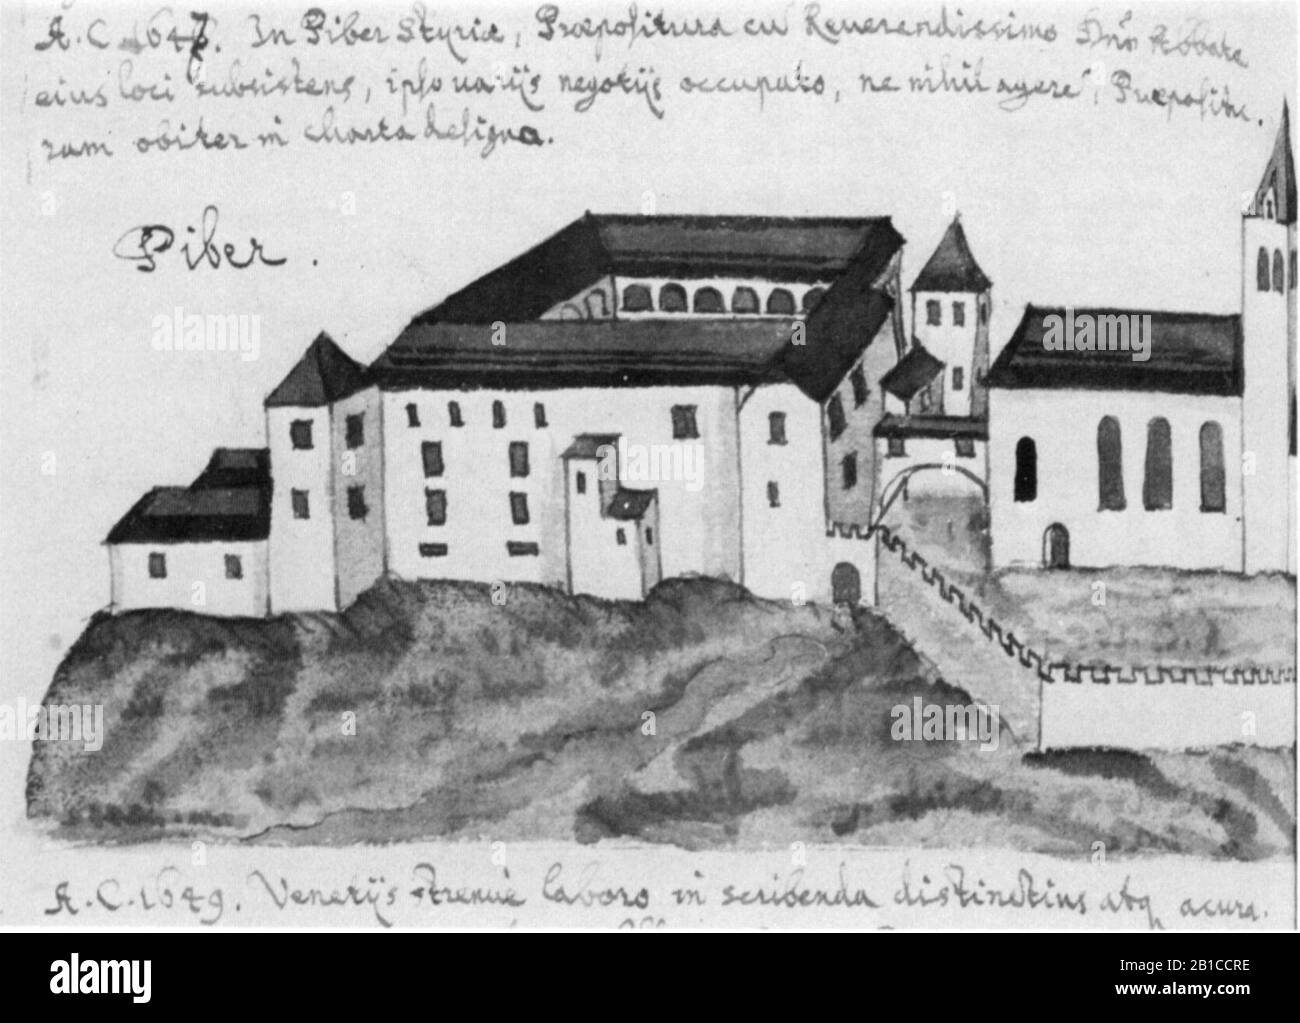 A. C. 1647. In Piber Styriæ, Præpositura cū Reuerendissimo Dño Abbate
eius loci subsistens, ipso uarijs negotijs occupato, ne nihil agere, Præpositu-
ram obiter in charta designa.
Piber.
A. C. 1649. Venetijs strenuè laboro in scribenda distinctius atq acura.
alamy
Image ID: 2B1CCRE
www.alamy.com